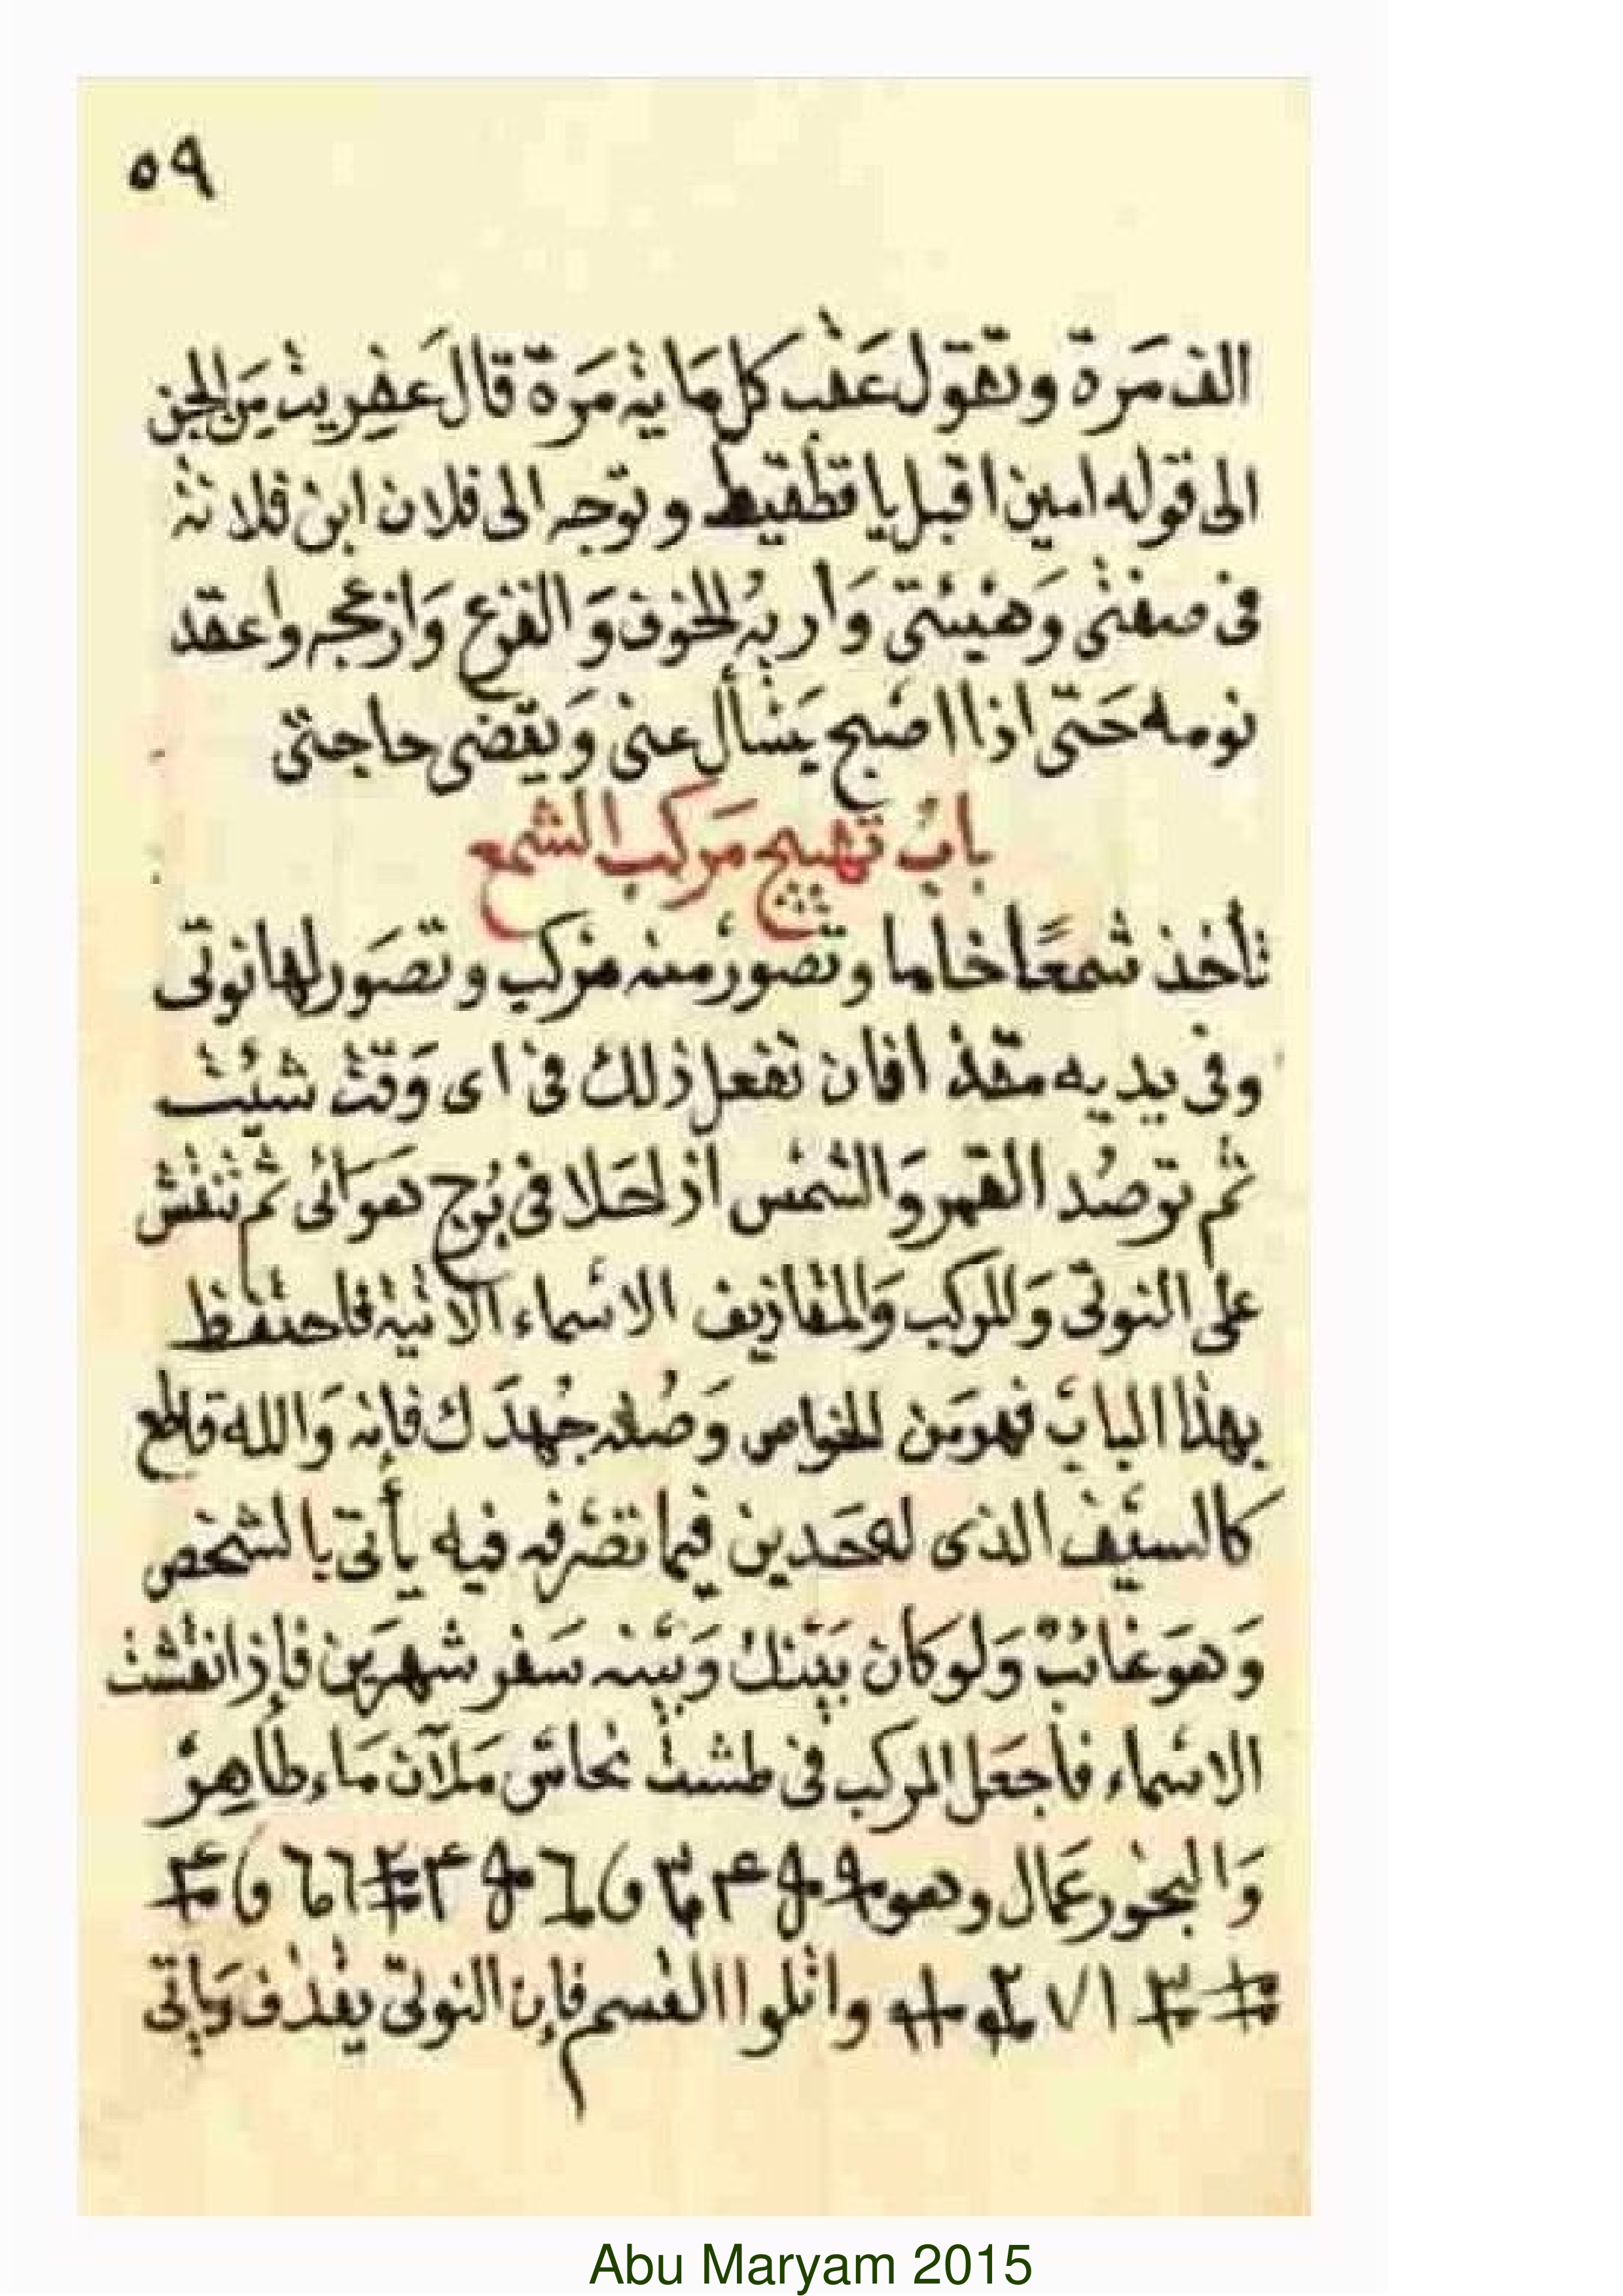 ٥٩
الف مَرة وتقول عَقب كل مَاية مَرة قالَ عفريت مِن الجن
الى قوله امين اقبل يا قطقيط وتوجه الى فلان ابن فلانة
فى صفتى وَهيئتى وَاريهُ الخوف وَالفزع وَازعجه واعقد
نومه حَتى اذا اصبح يَسأل عنى وَيقضى حاجتى
بابُ تهييج مَركب الشمع
تأخذ شمعًا خاما وتصورُ منه مركب وتصَور لها نوتى
وفى يديه مقذافان تفعل ذلك فى اى وَقت شيئت
ثم توصُد القمر وَالشمس اذا حَلا فى بُرج هوَائى ثم تنقش
على النوتى وَالمركب وَالمقاذيف الاسماء الاتية فاحتفظ
بهذا البابَ فهو مَن الخواص وَصُنه جُهدَك فإنه وَالله قاطع
كالسيف الذى له حَدين فيما تصَرفه فيه يأتى بالشخص
وَهوَ غائبْ وَلو كان بيَنك وَبيَنه سَفر شهرَين فإذا نقشت
الاسماء فاجعَل المركب فى طشت نحاس مَلآن مَاء طاهِرْ
وَالبخور عَمال وهو
واتلوا القسم فإن النوتى يقذف وَياتى
Abu Maryam 2015